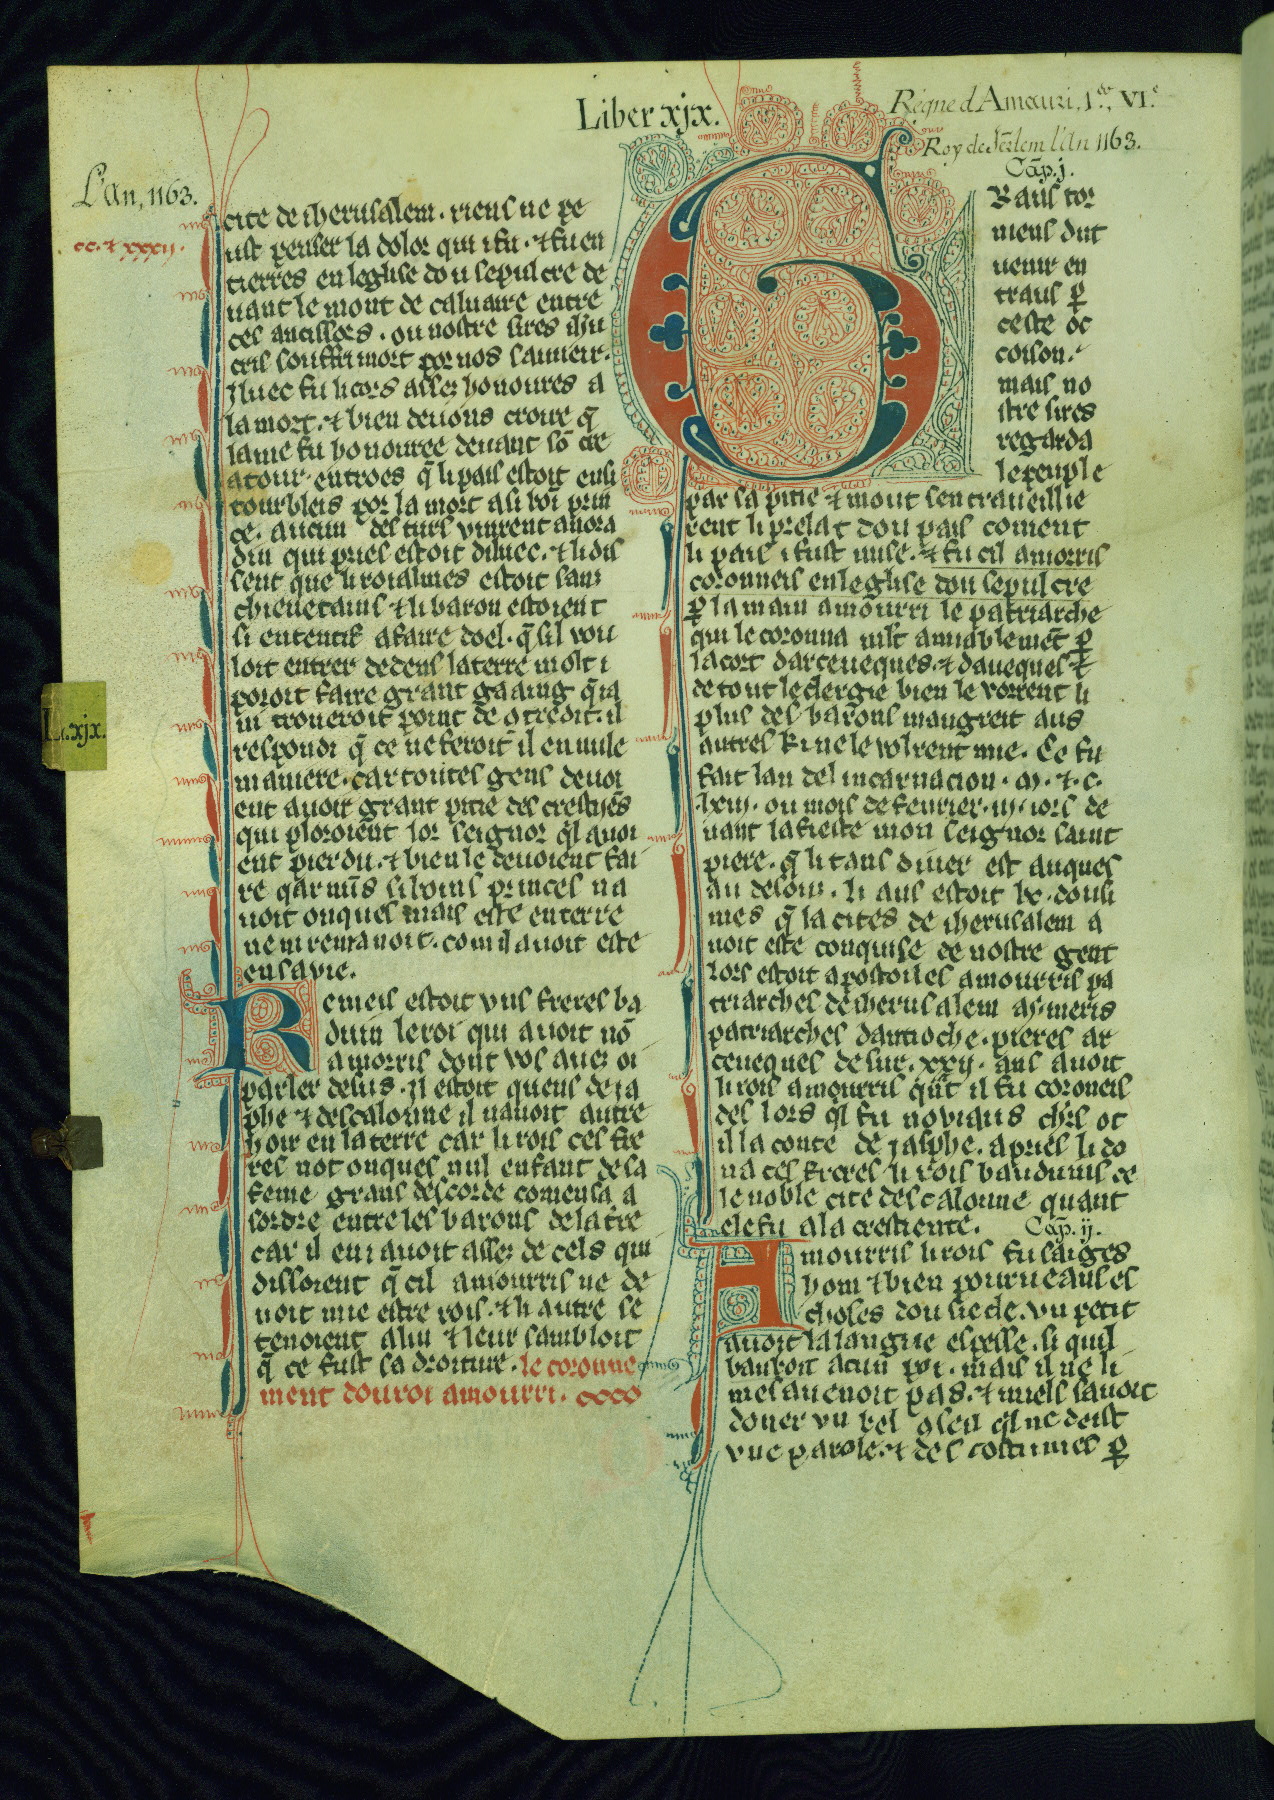 Liber xjx.
Régne d'Amauri, 1.er, VI.e
Roy de Jer̄lem l'An 1163.
L'An, 1163.
cc. ⁊ xxxij.
L. xjx.
cite de iherusalem. riens ne pe
ust penser la dolor qui i fu. ⁊ fu en
tierres en leglise dou sepulcre de
uant le mont de caluaire entre
ces ancissors. ou nostre sires ihu
cris souffri mort por nos sauueir.
Iluec fu li cors assez honoures a
la mort. ⁊ bien deuons croire q̄
lame fu honouree deuant sō cre
atour. entroes q̄ li pais estoit ensi
tourbleis por la mort a si boī prin
ce. aucun des turs vinrent a nora
din qui pries estoit diluec. ⁊ li dis
sent que li roialmes estoit sans
chieuetains ⁊ li baron estoient
si ententif a faire doel. q̄ sil vou
loit entrer dedens la terre molt i
poroit faire grant gaaing q̄ ia
ni troueroit point de ꝯtredit. il
respondi q̄ ce ne feroit il en nule
maniere. car toutes gens deuoi
ent auoir grant pitie des crestiiēs
qui ploroiēnt lor seignor q̄l auoi
ent pierdu. ⁊ bien le deuoient fai
re qar nūs si boins princes na
uoit onques mais este en terre
ne ni remanoit. com il auoit este
en sa vie.
Remeis estoit vns freres ba
duin le roi qui auoit nō
amorris dont vos auez oi
parler desus. Il estoit quens de ia
phe ⁊ descalonne il nauoit autre
hoir en la terre car li rois ces fre
res not onques nul enfant de sa
feme grans descorde comensa a
sordre entre les barons de la tr̄e
car il en i auoit assez de cels qui
dissoient q̄ cil amourris ne de
uoit mie estre rois. ⁊ li autre se
tenoient a lui ⁊ leur sambloit
q̄ ce fust sa droiture. le coronne
ment dou roi amourri.
Cāp. j.
Grans tor
mens dut
uenir en
traus ꝑ
ceste oc
coison.
mais no
stre sires
regarda
le peuple
par sa pitie ⁊ mout sen traueillie
rent li prelat dou pais coment
li pais i fust mise. ⁊ fu cil amorris
coronneis en leglise dou sepulcre
ꝑ la main amourri le patriarche
qui le coronna mlt̄ amiablemēt ꝑ
lacort darceueques. ⁊ daueques ⁊
de tout le clergie bien le vorrent li
plus des barons maugreit aus
autres ki ne le volrent mie. Ce fu
fait lan del incarnacion. M. ⁊. C.
lxiij. ou mois de feurier. iij. iors de
uant la fieste mon seignor saint
piere. q̄ li tans diuier est auques
au desous. li ans estoit lx. ⁊ ousi
mes q̄ la cites de iherusalem a
uoit este conquise de nostre gent
lors estoit apostoiles amourris pa
triarches de iherusalem aymeris
patriarches dantioche. pieres ar
ceueques de sur. xxij. ans auoit
li rois amourris qūt il fu coroneis
des lors q̄l fu nouiaus ch̄rs ot
il la conte de iasphe. apries li do
na ces freres li rois bauduins de
le noble cite descalonne quant
ele fu a la crestiente.
Cāp. ij.
Amourris li rois fu saiges
hom ⁊ bien pourueaus es
choses dou siecle. vn petit
auoit la langue espesse. si quil
bauboit acun poi. mais il ne li
mesauenoit pas. ⁊ miels sauoit
doner vn bel ꝯseil q̄l ne deist
vne parole. ⁊ des costumes ꝑ